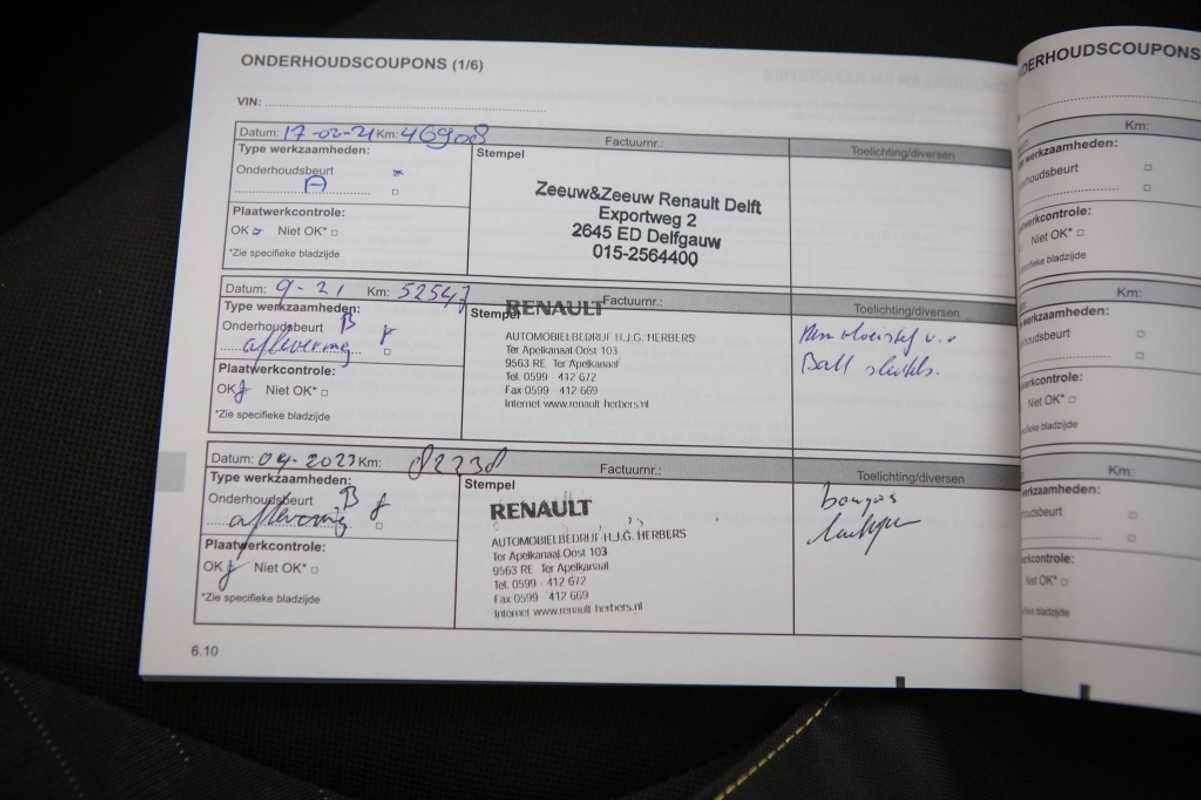 ONDERHOUDSCOUPONS (1/6)
VIN:
Datum: 17-02-21 Km: 46908 Factuurnr.: Toelichting/diversen
Type werkzaamheden:
Stempel
Onderhoudsbeurt
A
Plaatwerkcontrole:
OK Niet OK* □
*Zie specifieke bladzijde
Zeeuw&Zeeuw Renault Delft
Exportweg 2
2645 ED Delfgauw
015-2564400
Datum: 9-21 Km: 52547 Factuurnr.: Toelichting/diversen
Type werkzaamheden:
Stempel
Onderhoudsbeurt B
aflevering
Plaatwerkcontrole:
OK Niet OK* □
*Zie specifieke bladzijde
RENAULT
AUTOMOBIELBEDRIJF H.J.G. HERBERS
Ter Apelkanaal Oost 103
9563 RE Ter Apelkanaal
Tel. 0599 - 412 672
Fax 0599 - 412 669
Internet www.renault herbers.nl
Datum: 04-2023 Km: 82238 Factuurnr.: Toelichting/diversen
Type werkzaamheden:
Stempel
Onderhoudsbeurt B
aflevering
Plaatwerkcontrole:
OK Niet OK* □
*Zie specifieke bladzijde
RENAULT
AUTOMOBIELBEDRIJF H.J.G. HERBERS
Ter Apelkanaal Oost 103
9563 RE Ter Apelkanaal
Tel. 0599 - 412 672
Fax 0599 - 412 669
Internet www.renault herbers.nl
6.10
DERHOUDSCOUPONS
Km:
werkzaamheden:
houdsbeurt
werkcontrole:
Niet OK* □
specifieke bladzijde
Km:
werkzaamheden:
houdsbeurt
werkcontrole:
Niet OK* □
specifieke bladzijde
Km:
werkzaamheden:
oudsbeurt
erkcontrole:
Niet OK* □
specifieke bladzijde